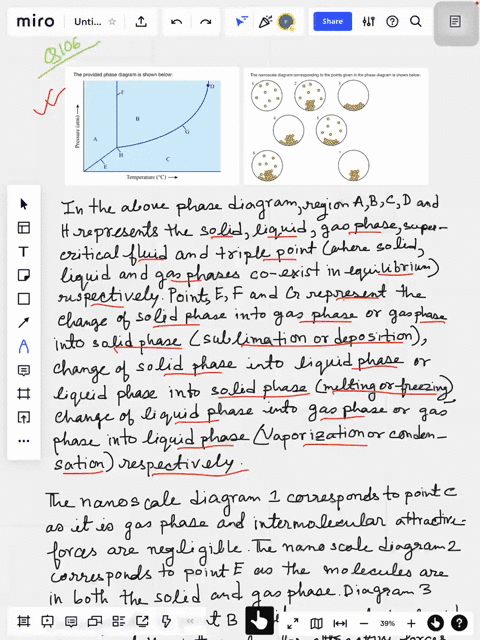 miro
Unti...
Share
CQ106
The provided phase diagram is shown below:
The nanoscale diagram corresponding to the points given in the phase diagram is shown below:
Pressure (atm)
A
B
C
D
E
F
G
H
Temperature (°C)
1
2
3
4
5
6
7
In the above phase diagram, region A, B, C, D and
H represents the solid, liquid, gas phase, super-
critical fluid and triple point (where solid,
liquid and gas phases co-exist in equilibrium)
respectively. Point, E, F and G represent the
change of solid phase into gas phase or gas phase
into solid phase (sublimation or deposition),
change of solid phase into liquid phase or
liquid phase into solid phase (melting or freezing)
change of liquid phase into gas phase or gas
phase into liquid phase (Vaporization or conden-
sation) respectively.
The nanoscale diagram 1 corresponds to point C
as it is gas phase and intermolecular attractive
forces are negligible. The nano scale diagram 2
corresponds to point E as the molecules are
in both the solid and gas phase. Diagram 3
39%